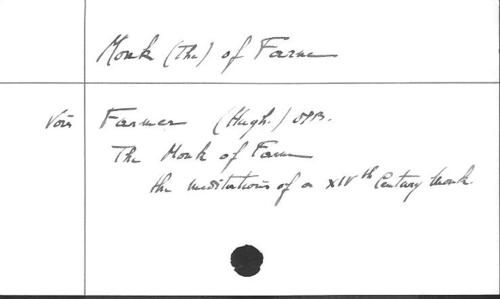 Monk (The) of Farne
Voir Farmer (Hugh.) OSB.
The Monk of Farne
the meditations of a XIVth Century Monk.